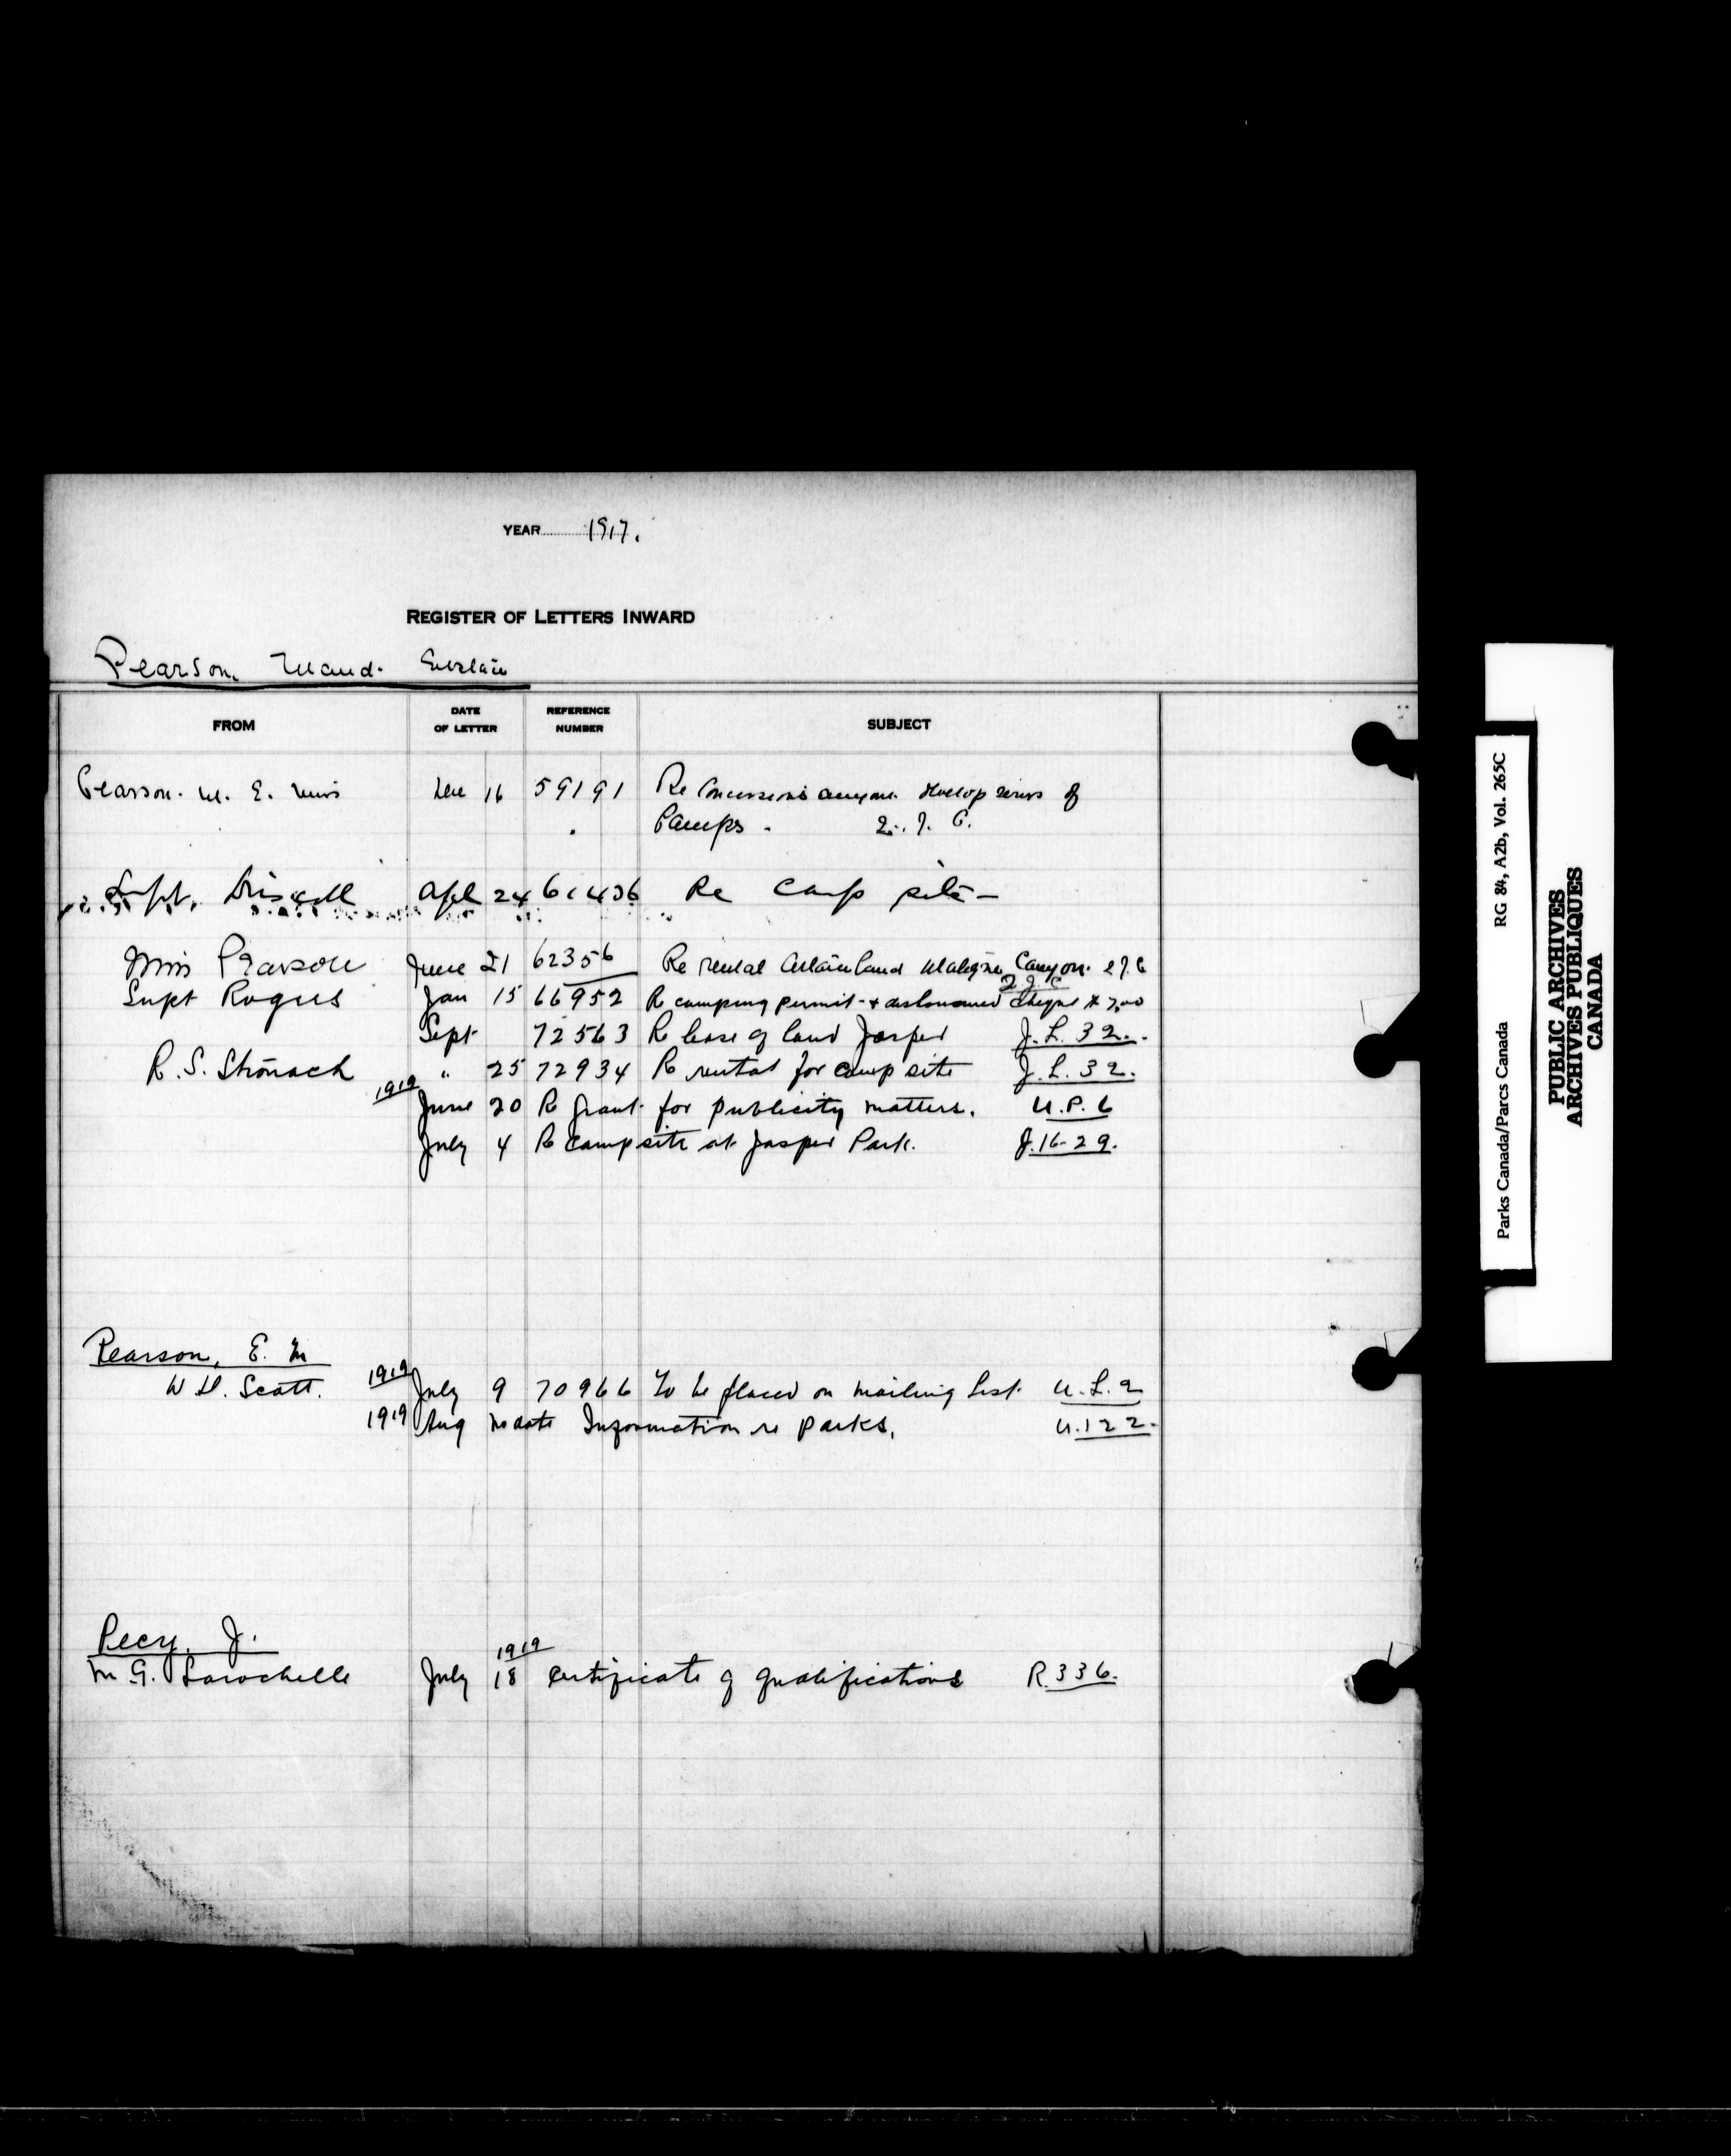 YEAR 1917.
REGISTER OF LETTERS INWARD
Pearson, Maud.
FROM DATE OF LETTER REFERENCE NUMBER SUBJECT
Pearson. M. E. Miss Dec 16 59191 Re Concessions develop series of
Camps.
Supt. Driscoll Apl 24 61436 Re Camp site
Miss Pearson June 21 62356 Re rental land Maligne Canyon.
Supt Rogers Jan 15 66952 Re camping permit + dishonoured cheque
Sept 72563 Re lease of land Jasper J.L.32.
R. S. Stronach " 25 72934 Re rental for camp site J.L.32.
1919 June 20 Re grant for publicity matters. U.P.6
July 4 Re camp site at Jasper Park. J.16-29.
Pearson, E. M
W. D. Scott. 1919 July 9 70966 To be placed on mailing list. U.L.2
1919 Aug no date Information re parks. U.122.
Pecy, J.
1919
M G. Larochelle July 18 Certificate of qualifications R.336.
Parks Canada/Parcs Canada RG 84, A2b, Vol. 265C
PUBLIC ARCHIVES
ARCHIVES PUBLIQUES
CANADA